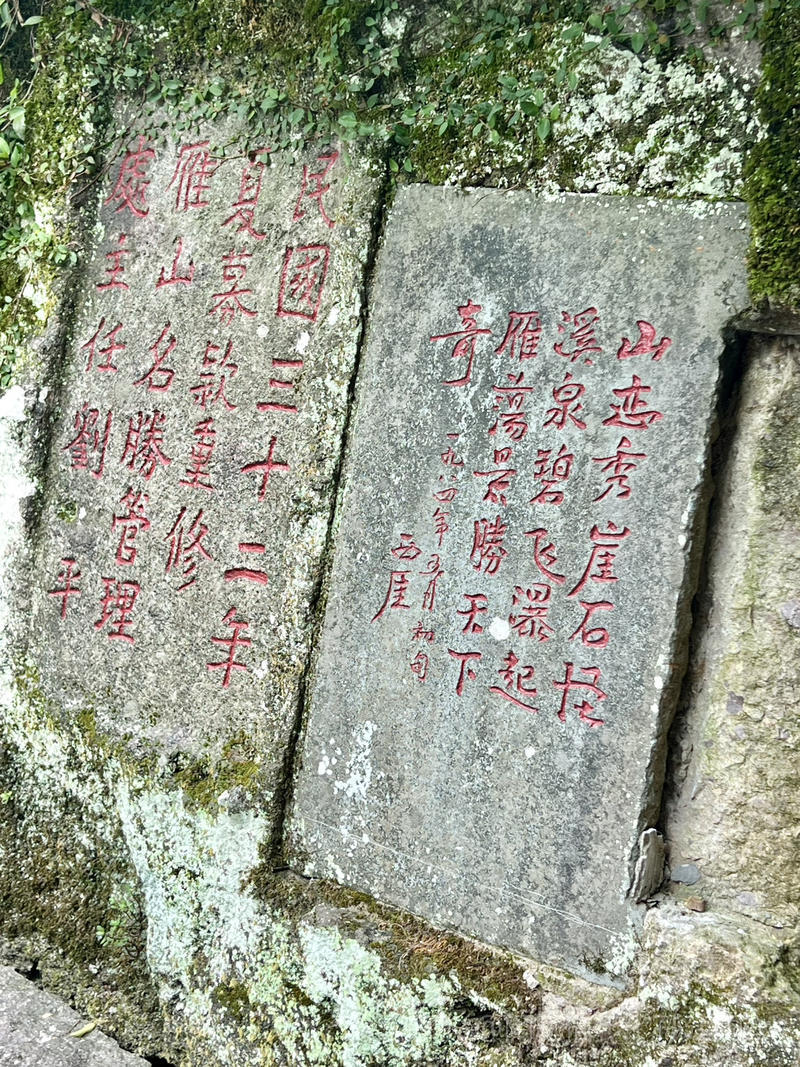 山恋秀崖石怪
溪泉碧飞瀑起
雁蕩景勝天下
奇
一九八四年五月初旬
西崖
民國三十二年
夏募款重修
雁山名勝管理
處主任劉平